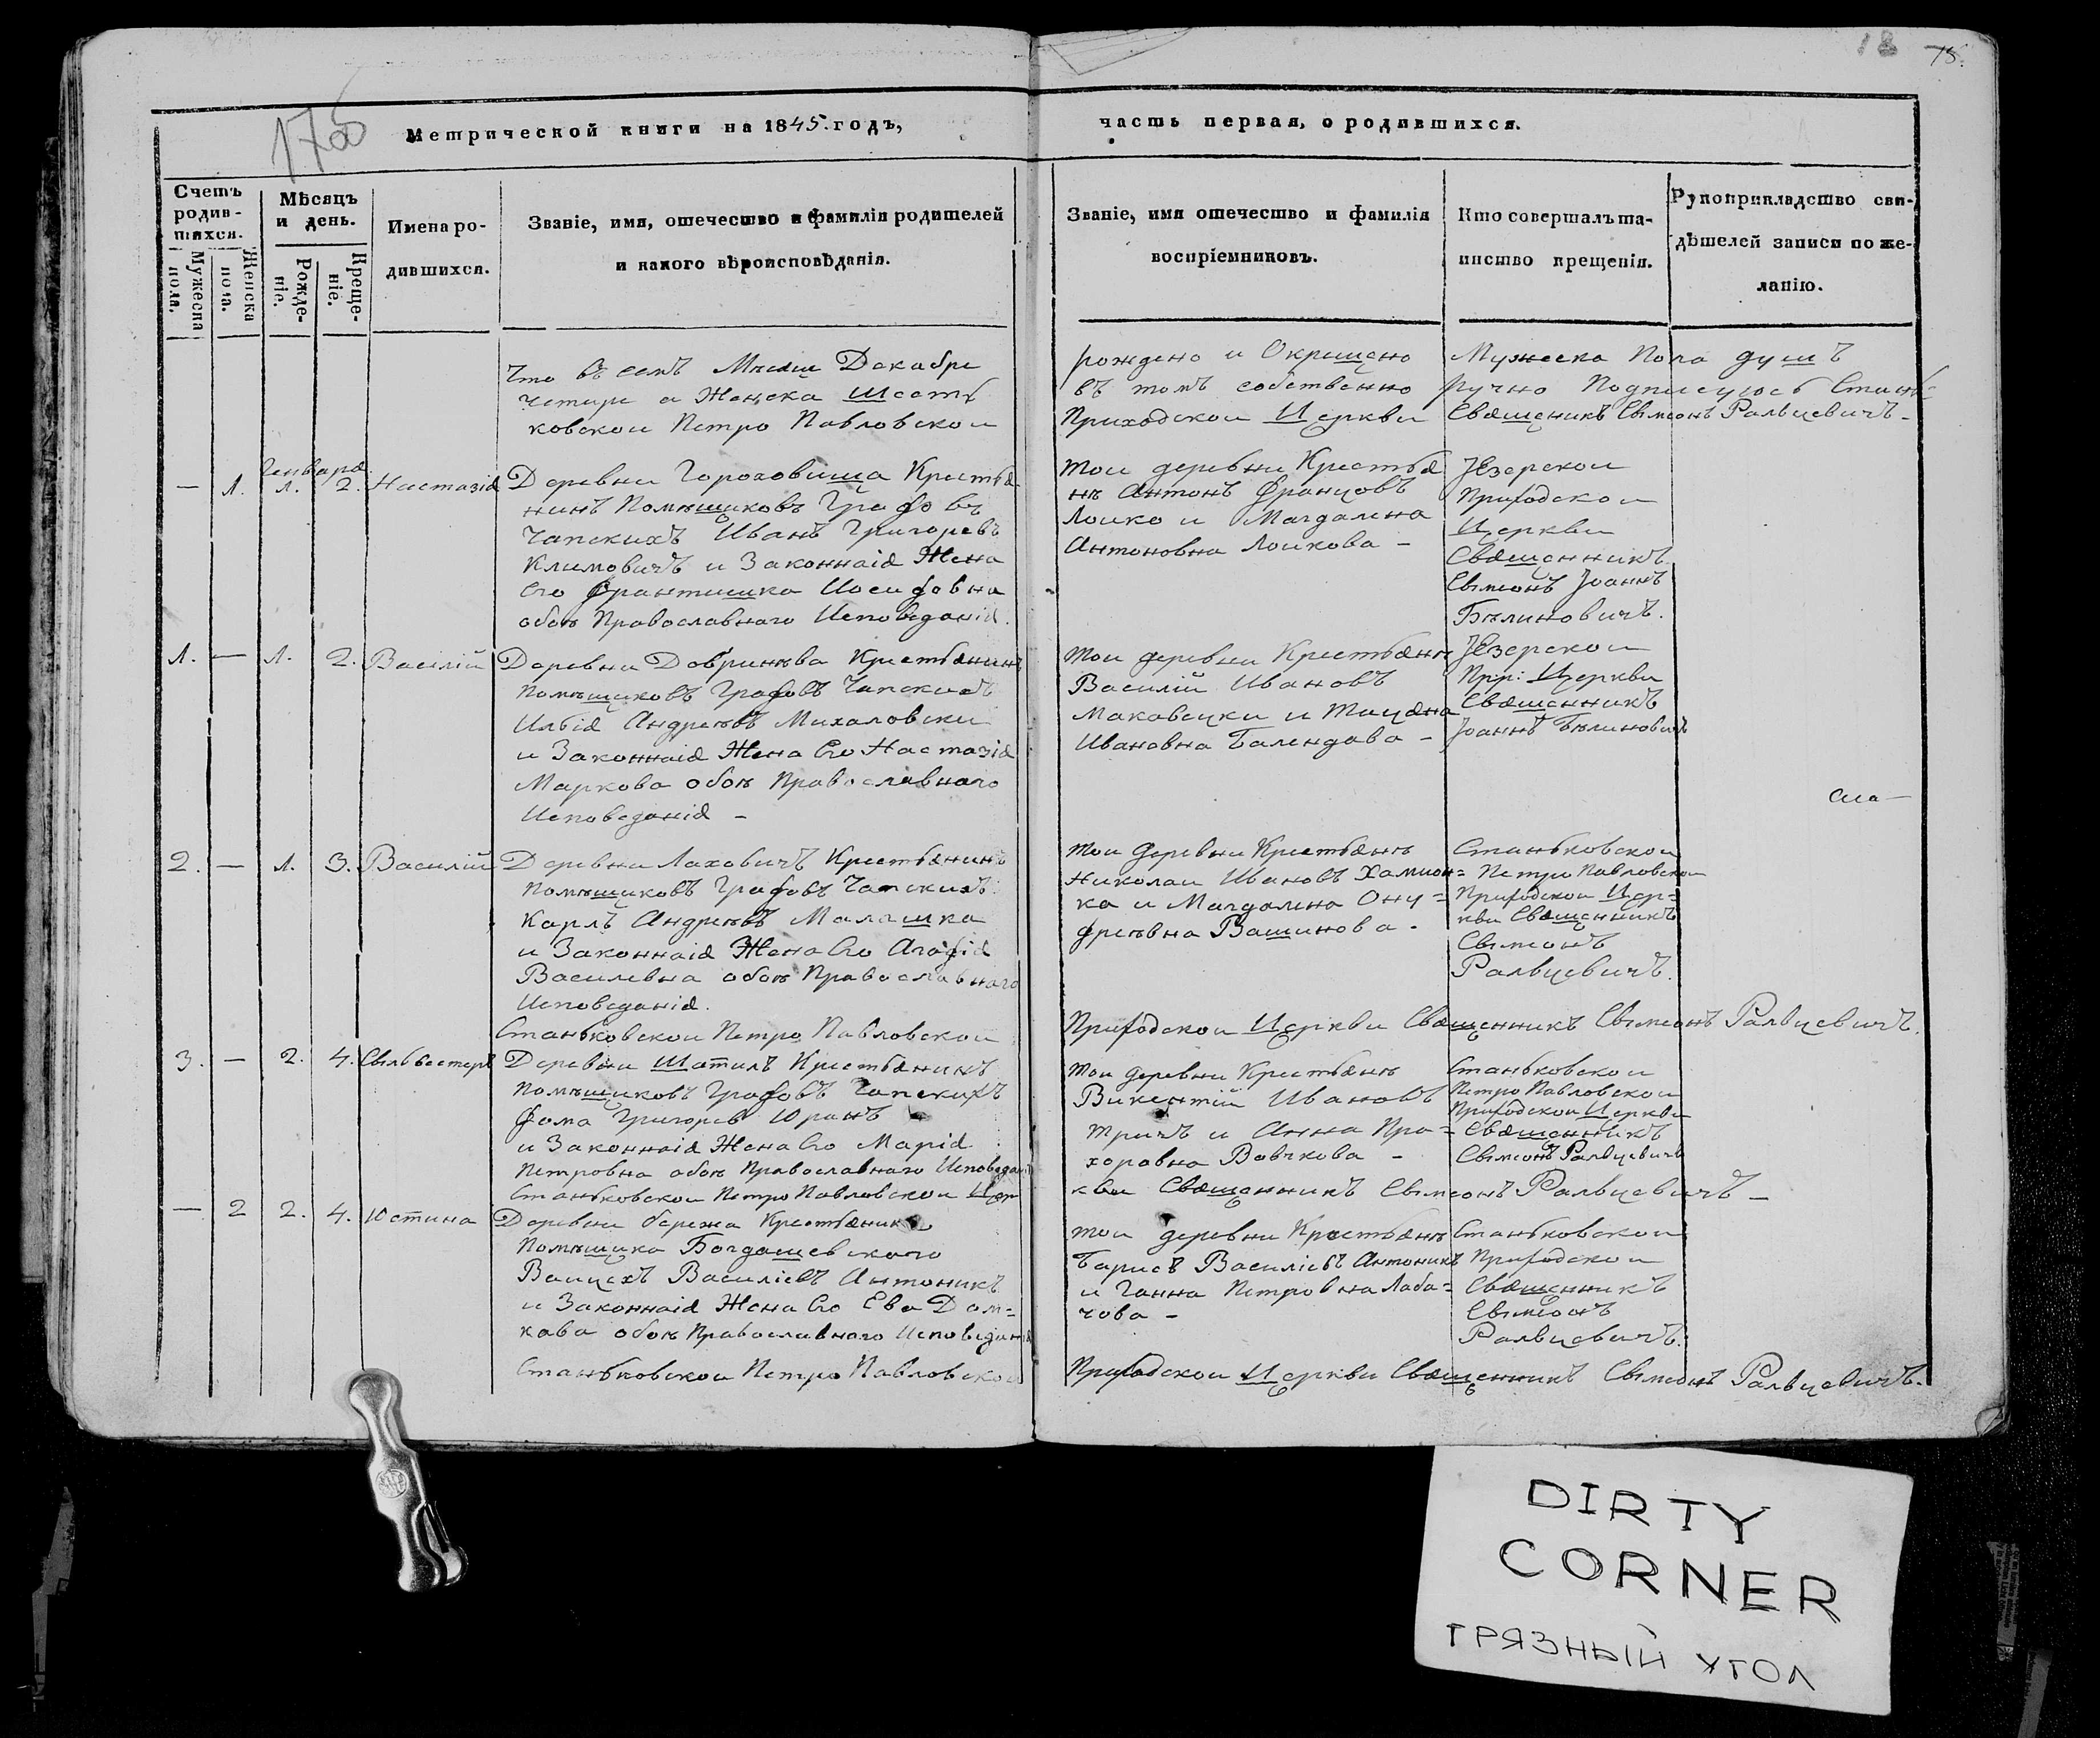 18 78.
175
Метрической книги на 1845. годъ,
часть первая, о родившихся.
Счетъ родив-шихся.
Мужеска пола.
Женска пола.
Мѣсяцъ и день.
Рожде-ніе.
Креще-ніе.
Имена ро-дившихся.
Званіе, имя, отечество и фамилія родителей
и какого вѣроисповѣданія.
Званіе, имя отечество и фамилія
воспріемниковъ.
Кто совершалъ та-
инство крещенія.
Рукоприкладство сви-
дѣтелей записи по же-
ланію.
Что въ семъ Месяце Декабре
четыре а Женска шесть
ковскои Петро Павловскои
рождено и Окрищено Мужеска пола душъ
въ томъ собственно ручно Подписуюсь Стань
Приходскои Церкви Свѧщеникъ Сѵмеонъ Ральцевичъ -
Генвара
— 1. 1. 2. Настазіѧ
Деревни Гороховища Крестьѧ
нинъ Помѣщиковъ Графовъ
Чапскихъ Иванъ Григоревъ
Климовичъ и Законнаіѧ Жена
Его Франтишка Иосифовна
обоѣ Православнаго Исповеданіѧ.
тои деревни Крестьѧ
нѣ Антонъ Францовъ
Лоико и Магдалена
Антоновна Лоикова -
Језерскои
Приходскои
Церкви
Свѧщенникъ
Сѵмеонъ Јоаннъ
Бѣлиновичъ.
1. — 1. 2. Василій
Деревни Добринева Крестьѧнинъ
помѣщиковъ Графовъ Чапскихъ
Ильіѧ Андреѣвъ Михаловски
и Законнаіѧ Жена Его Настазіѧ
Маркова обоѣ Православнаго
Исповеданіѧ -
тои деревни Крестьѧнѣ
Василій Ивановъ
Маковецки и Тацѧна
Ивановна Балендава -
Језерскои
Прр: Церкви
Свѧщенникъ
Јоаннъ Бѣлиновичъ
2. — 1. 3. Василій
Деревни Лаховичъ Крестьѧнинъ
помѣщиковъ Графовъ Чапскихъ
Карлъ Андреѣвъ Малашка
и Законнаіѧ Жена Его Агафіѧ
Василевна обоѣ Православнаго
Исповеданіѧ.
тои деревни Крестьѧнѣ
Николаи Ивановъ Хамион=
ка и Магдалена Ону=
фреѣвна Вашинова.
Станьковскои
Петро Павловскои
Приходскои Цер=
кви Свѧщенникъ
Сѵмеонъ
Ральцевичъ.
Станьковскои Петро Павловскои
Приходскои Церкви Свѧщенникъ Сѵмеонъ Ральцевичъ.
3. — 2. 4. Сѵльвестеръ
Деревни Шатилъ Крестьѧнинъ
помѣщиковъ Графовъ Чапскихъ
Фома Григорев Юранъ
и Законнаіѧ Жена Его Маріѧ
Петровна обоѣ Православнаго Исповедані
тои деревни Крестьѧнѣ
Викентій Ивановъ
Тричъ и Анна Про=
хоровна Вовчкова -
Станьковскои
Петро Павловскои
Приходскои Церкви
Свѧщенникъ
Сѵмеонъ Ральцевичъ
Станьковскои Петро Павловскои Цер
кви Свѧщенникъ Сѵмеонъ Ральцевичъ -
— 2 2. 4. Юстина
Деревни бережа Крестьѧнинъ
Помѣщика Богдашевскаго
Ваицехъ Василіевъ Антоникъ
и Законнаіѧ Жена Его Ева Дом=
кова обоѣ Православнаго Исповеданіѧ
тои деревни Крестьѧнѣ
Барисъ Василіевъ Антоникъ
и Ганна Петровна Лаба=
чова -
Станьковскои
Приходскои
Свѧщенникъ
Сѵмеонъ
Ральцевичъ.
Станьковскои Петро Павловскои
Приходскои Церкви Свѧщенникъ Сѵмеонъ Ральцевичъ.
DIRTY
CORNER
ГРЯЗНЫЙ УГОЛ